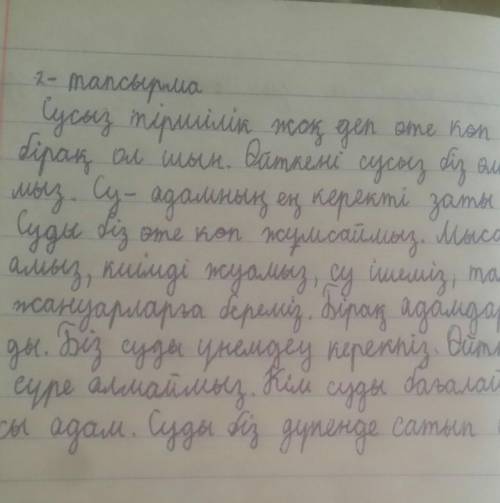 2- тапсырма
Сусыз тіршілік жоқ деп өте көп
бірақ ол шын. Өйткені сусыз біз өл
мыз. Су- адамның ең керекті заты
Суды біз өте көп жұмсаймыз. Мыса
амыз, киімді жуамыз, су ішеміз, та
жануарларға береміз. Бірақ адамдар
ды. Біз суды үнемдеу керекпіз. Өйтк
сүре алмаймыз. Кім суды бағалай
сы адам. Суды біз дүкенде сатып